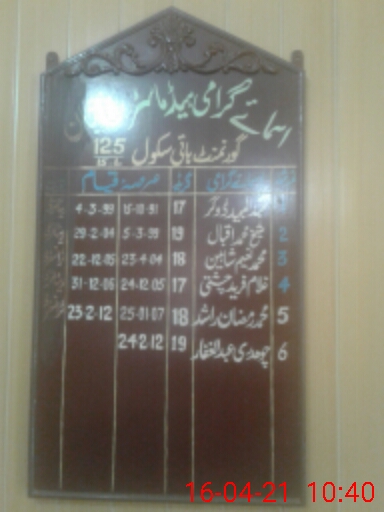 اسمائے گرامی ہیڈ ماسٹر
گورنمنٹ ہائی سکول 125 15-L
گرامی گریڈ عرصہ قیام
1 عبدالمجید ڈوگر 17 15-10-91 4-3-99
2 شیخ محمد اقبال 19 5-3-99 29-2-04
3 محمد نعیم شاہین 18 23-4-04 22-12-05
4 غلام فرید چشتی 17 24-12-05 31-12-06
5 محمد رمضان راشد 18 25-01-07 23-2-12
6 چوھدری عبدالغفار 19 24-2-12
16-04-21 10:40